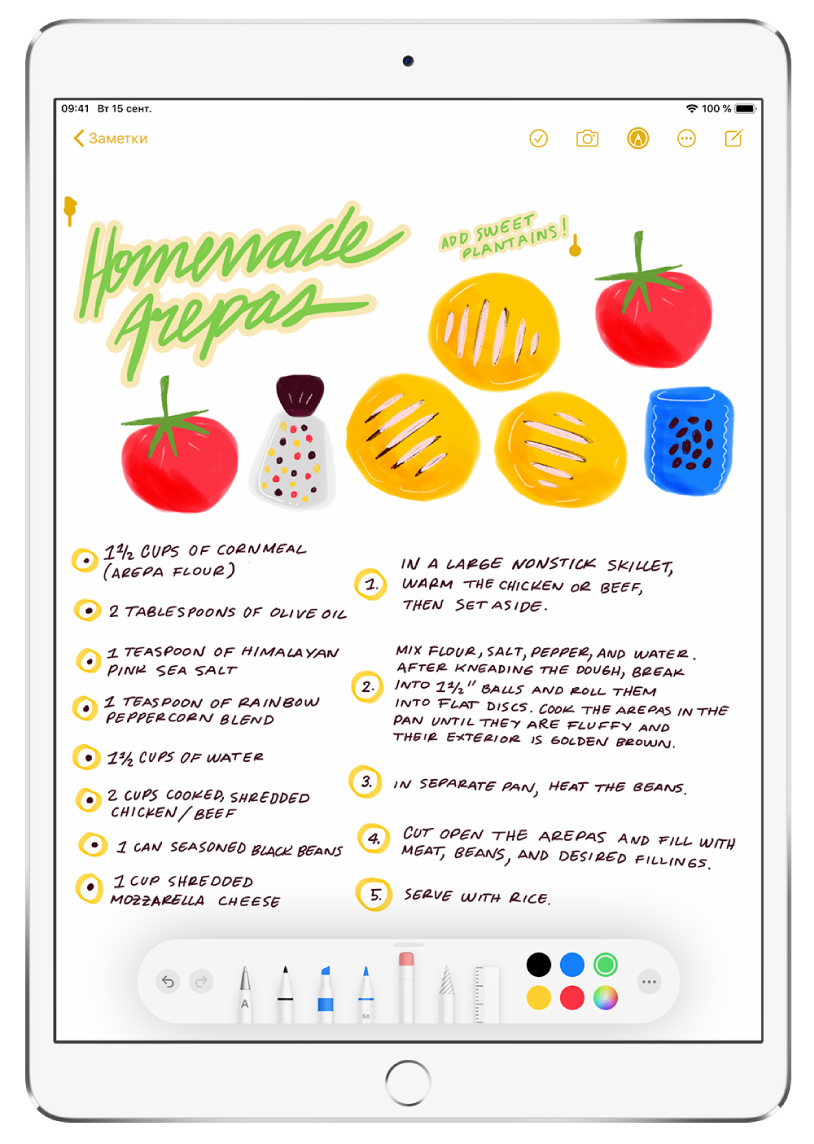 09:41 Вт 15 сент.
100 %
Заметки
Homemade
Arepas
ADD SWEET
PLANTAINS!
1 1/2 CUPS OF CORNMEAL
(AREPA FLOUR)
2 TABLESPOONS OF OLIVE OIL
1 TEASPOON OF HIMALAYAN
PINK SEA SALT
1 TEASPOON OF RAINBOW
PEPPERCORN BLEND
1 1/2 CUPS OF WATER
2 CUPS COOKED, SHREDDED
CHICKEN/BEEF
1 CAN SEASONED BLACK BEANS
1 CUP SHREDDED
MOZZARELLA CHEESE
1. IN A LARGE NONSTICK SKILLET,
WARM THE CHICKEN OR BEEF,
THEN SET ASIDE.
2. MIX FLOUR, SALT, PEPPER, AND WATER.
AFTER KNEADING THE DOUGH, BREAK
INTO 1 1/2" BALLS AND ROLL THEM
INTO FLAT DISCS. COOK THE AREPAS IN THE
PAN UNTIL THEY ARE FLUFFY AND
THEIR EXTERIOR IS GOLDEN BROWN.
3. IN SEPARATE PAN, HEAT THE BEANS.
4. CUT OPEN THE AREPAS AND FILL WITH
MEAT, BEANS, AND DESIRED FILLINGS.
5. SERVE WITH RICE.
A
50